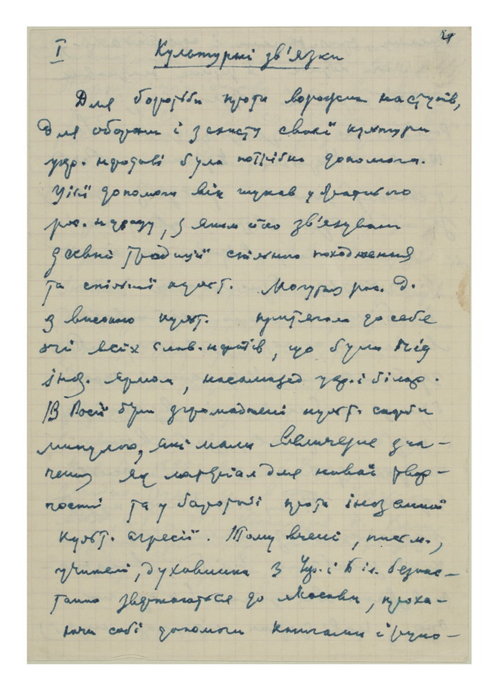 I
Культурні зв'язки
Для боротьби проти ворожих наступів,
для оборони і захисту своєї культури
укр. народові була потрібна допомога.
Цієї допомоги він шукав у братнього
рос. народу, з яким його зв'язували
давні традиції спільного походження
та спільної культ. Могутня рос. д.
з високою культ. притягала до себе
очі всіх слов. народів, що були під
іноз. ярмом, насамперед укр. і білор.
В Росії були згромаджені культ. скарби
минулого, які мали величезне зна-
чення як матеріал для нової твор-
чости та у боротьбі проти іноземної
культ. агресії. Тому вчені, письм.,
учителі, духовники з Укр. і Біл. безпес-
танно звертаються до Москви, проха-
ючи собі допомоги книгами і руко-